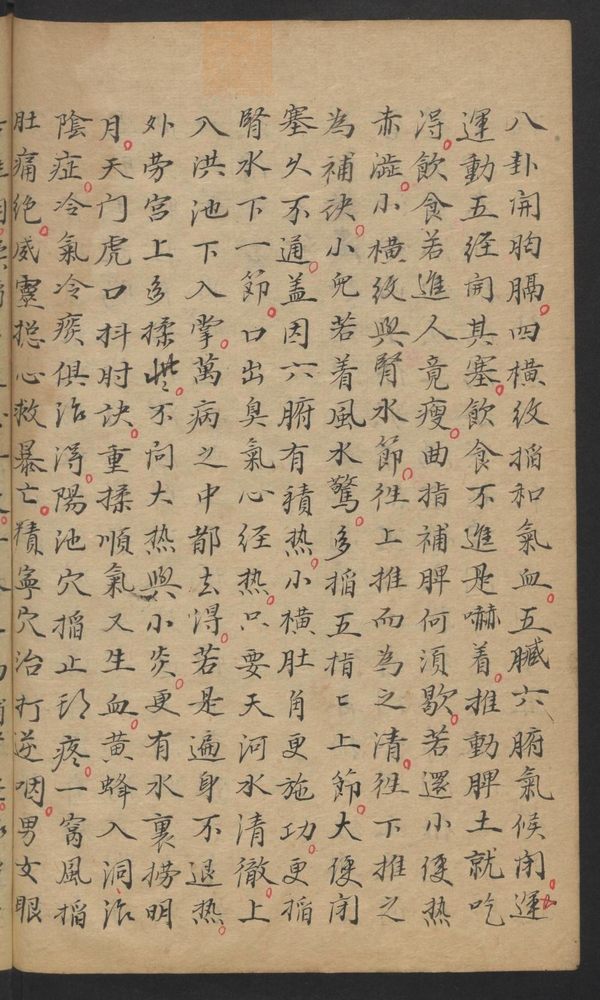 八卦開胸膈四橫紋掐和氣血五臟六腑氣候閉運
運動五经開其塞飲食不進是嚇着推動脾土就吃
淂飲食若進人竟瘦曲指補脾何須歇若還小便热
赤澁小橫紋與腎水節徃上推而為之清徃下推之
為補訣小兒若着風水驚多掐五指匕上節大便閉
塞久不通盖因六腑有積热小橫肚角更施功更掐
腎水下一節口出臭氣心经热只要天河水清徹上
入洪池下入掌萬病之中都去淂若是遍身不退热
外劳宮上多揉㧪不问大热與小炎更有水裏捞明
月天门虎口抖肘訣重揉順氣又生血黄蜂入洞治
陰症冷氣冷痰俱治淂陽池穴掐止頭疼一窝風掐
肚痛绝威靈揔心救暴亡猜寧穴治打逆咽男女眼